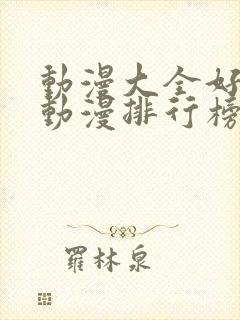 動漫大全好
動漫排行榜
羅林泉